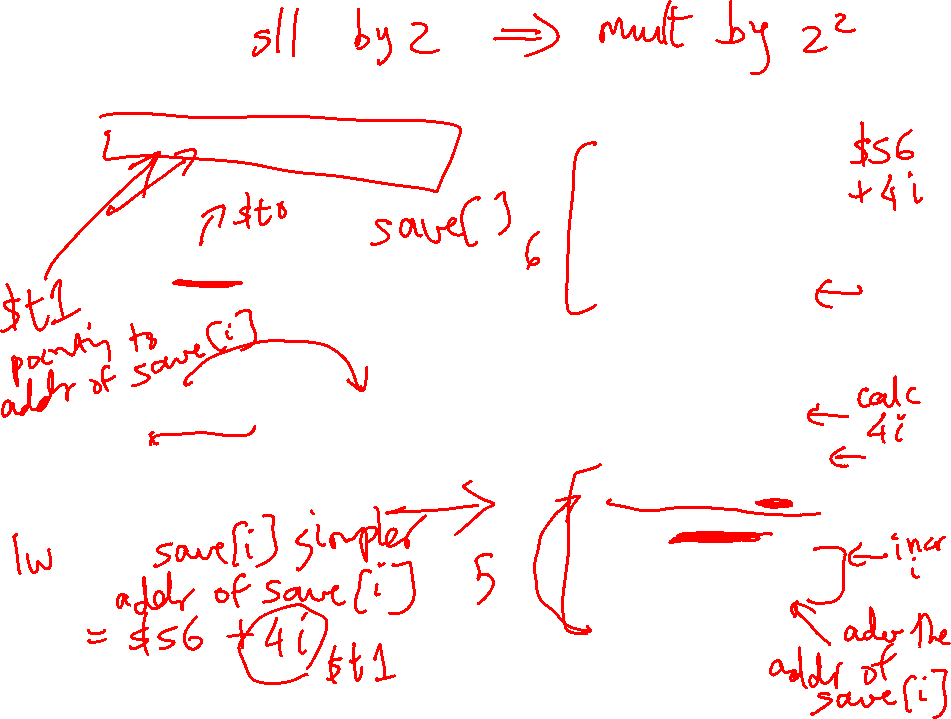 sll by 2 ⇒ mult by 2²
$s6
+ 4i
$t0
save[]
6
$t1
pointing to
addr of save[i]
← calc
4i
lw
save[i] simpler
addr of save[i]
= $s6 + 4i
$t1
5
← incr
i
adv the
addr of
save[i]